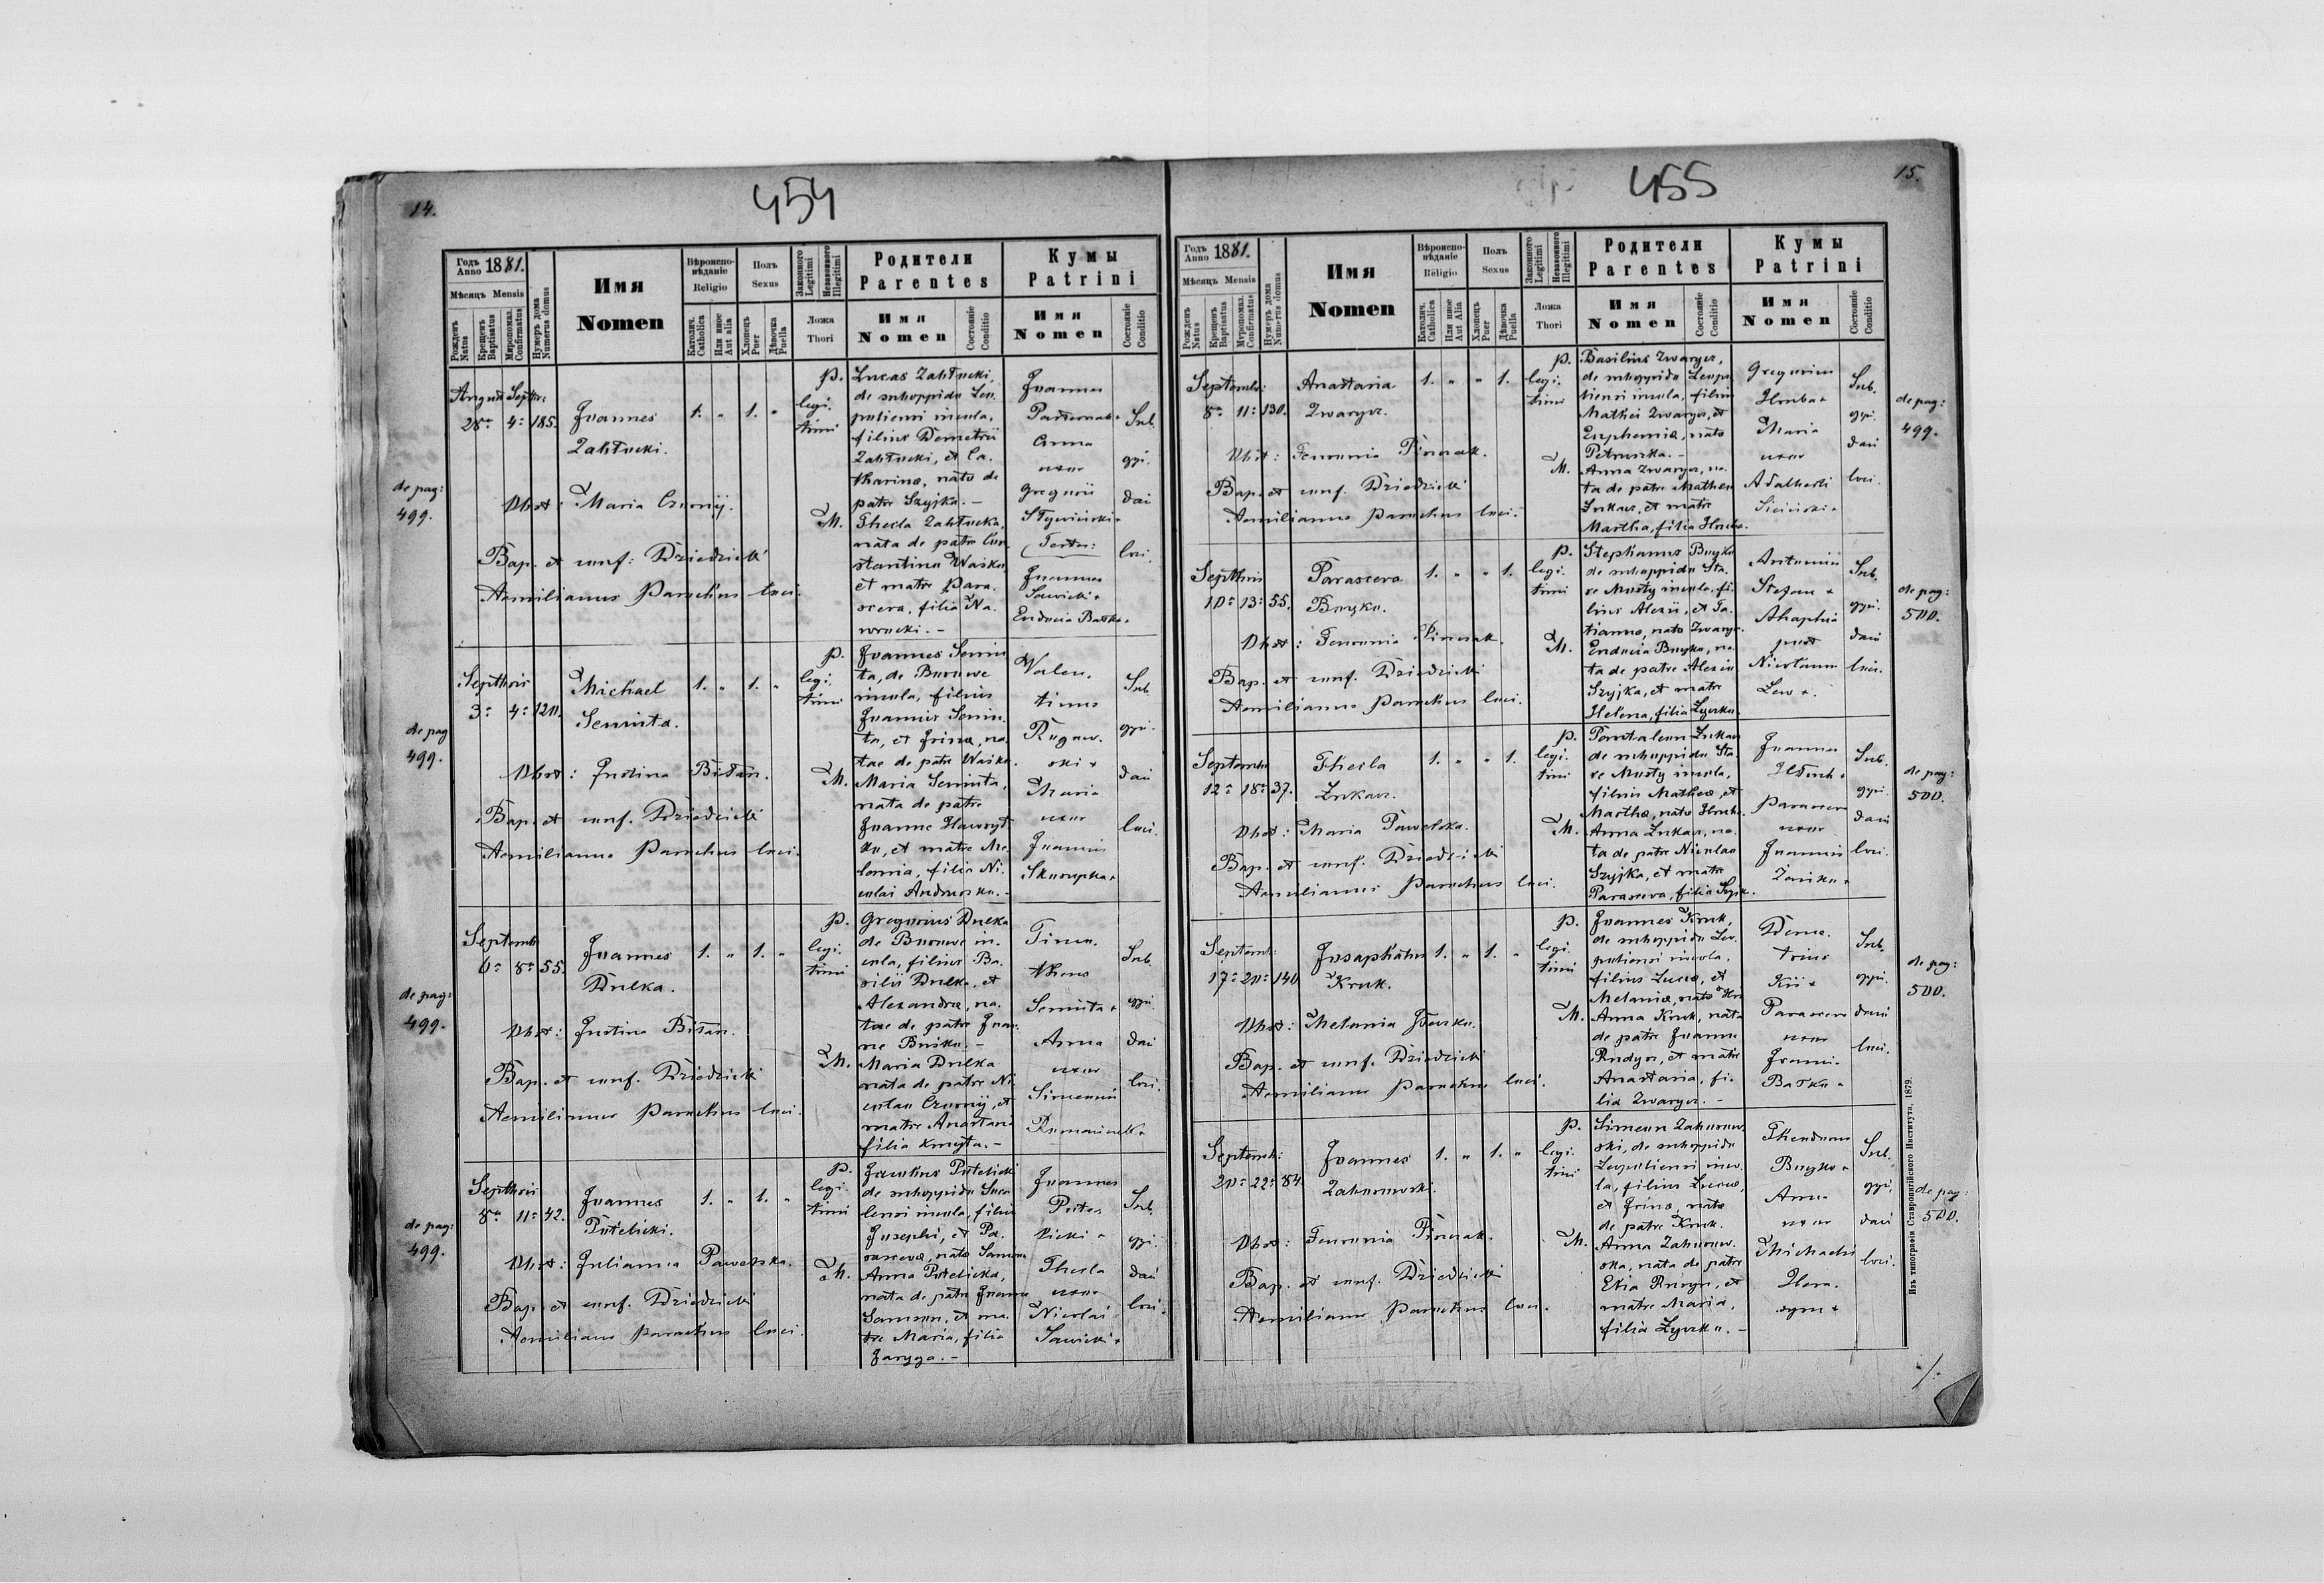 14.
454
Годъ Anno 1881.
Мѣсяцъ Mensis
Рожденъ Natus
Крещенъ Baptisatus
Миропомаз. Confirmatus
Нумеръ дома Numerus domus
Имя
Nomen
Вѣроиспо-
вѣданіе
Religio
Католич. Catholica
Или иное Aut alia
Полъ
Sexus
Хлопецъ Puer
Дѣвочка Puella
Законного Legitimi
Незаконного Illegitimi
Ложа
Thori
Родители
Parentes
Имя
Nomen
Состояніе Conditio
Кумы
Patrini
Имя
Nomen
Состояніе Conditio
de pag:
499.
August Septbr
28ª 4ª 185.
Joannes
Zahłucki.
1. " 1. "
Obst: Maria Czornij.
Bap. et conf: Dziedzicki
Aemilianus Parochus loci.
P.
legi.
timi
M.
Lucas Zahłucki,
de suboppido Leo.
poliensi incola,
filius Demetrii
Zahłucki, et Ca.
tharinæ, natæ de
patre Szyjka. -
Thecla Zahłucka,
nata de patre Con
stantino Wasko,
et matre Para.
sceva, filia Na.
worocki. -
Joannes
Anna
uxor
Gregorii
Joannes
Sawicki +
Sub.
oppi.
dani
loci.
de pag
499.
Septbris
3ª 4ª 120.
Michael
Semuta.
1. " 1. "
Obst: Justina Biłan.
Bap. et conf. Dziedzicki
Aemilianus Parochus loci.
P.
legi.
timi
M.
Joannes Semu
ta, de Buxowe
incola, filius
Joannis Semu.
ta, et Irinæ, na.
tae de patre Wasko.
Maria Semuta,
nata de patre
Joanne Hawrył
ko, et matre Me.
lania, filia Ni.
colai Andrusko. -
Valen.
tinus
Rogow.
ski +
Maria
uxor
Joannis
Skorupka +
Sub.
oppi.
dani
loci.
de pag:
499.
Septemb
6ª 8ª 55.
Joannes
Dulka.
1. " 1. "
Obst: Justina Biłan.
Bap. et conf. Dziedzicki
Aemilianus Parochus loci.
P.
legi.
timi
M.
Gregorius Dulka
de Buxowe in.
cola, filius Ba.
silii Dulka, et
Alexandræ, na.
tae de patre Joan.
ne Busko. -
Maria Dulka
nata de patre Ni
colao Czornij, et
matre Anastasia
filia Kmyta. -
Timo.
theus
Semuta +
Anna
uxor
Simeonis
Sub.
oppi.
dani
loci.
de pag:
499.
Septbris
8ª 11ª 42.
Joannes
Potelicki.
1. " 1. "
Obst: Julianna Pawelska.
Bap. et conf. Dziedzicki
Aemilianus Parochus loci.
P.
legi.
timi
M.
Jacobus Potelicki
de suboppido Luca
lensi incola, filius
Josephi, et Pa.
rascevæ, natæ Samson
Anna Potelicka,
nata de patre Joanne
Samson, et ma.
tre Maria, filia
Jaryga. -
Joannes
Pote.
licki +
Thecla
uxor
Nicolai
Sawicki +
Sub.
oppi.
dani
loci.
15.
455
Годъ Anno 1881.
Мѣсяцъ Mensis
Рожденъ Natus
Крещенъ Baptisatus
Миропомаз. Confirmatus
Нумеръ дома Numerus domus
Имя
Nomen
Вѣроиспо-
вѣданіе
Religio
Католич. Catholica
Или иное Aut Alia
Полъ
Sexus
Хлопецъ Puer
Дѣвочка Puella
Законного Legitimi
Незаконного Illegitimi
Ложа
Thori
Родители
Parentes
Имя
Nomen
Состояніе Conditio
Кумы
Patrini
Имя
Nomen
Состояніе Conditio
Septemb:
8ª 11ª 130.
Anastasia
Zwarycz.
1. " " 1.
Obst: Fevronia Pirożak.
Bap. et conf. Dziedzicki
Aemilianus Parochus loci.
P.
legi.
timi
M.
Basilius Zwarycz,
de suboppido Leopo
liensi incola, filius
Mathei Zwarycz, et
Euphemiæ, natæ
Petruszka. -
Anna Zwarycz, na.
ta de patre Matheo
Lukacz, et matre
Martha, filia Hruba.
Gregorius
Hruba +
Maria
uxor
Adalberti
Siciński +
Sub.
oppi.
dani
loci.
de pag:
499.
Septbris
10ª 13ª 55.
Parasceva
Buyko.
1. " " 1.
Obst: Fevronia Pirożak.
Bap. et conf. Dziedzicki
Aemilianus Parochus loci.
P.
legi.
timi
M.
Stephanus Buyko
de suboppido Sta.
re Mosty incola, fi.
lius Alexii, et Ta.
tiannæ, natæ Zwarycz.
Eudocia Buyko, na.
ta de patre Alexio
Szyjka, et matre
Helena, filia Zyczko.
Antonius
Stefan +
Ahaphia
post
Nicolaum
Lew +.
Sub.
oppi.
dani
loci.
de pag:
500.
Septemb
12ª 18ª 37.
Thecla
Lukacz.
1. " " 1.
Obst: Maria Pawelska.
Bap. et conf. Dziedzicki
Aemilianus Parochus loci.
P.
legi.
timi
M.
Pantaleon Lukacz
de suboppido Sta.
re Mosty incola,
filius Mathei, et
Marthæ, natæ Hruba.
Anna Lukacz, na.
ta de patre Nicolao
Szyjka, et matre
Parasceva, filia Szyjk.
Joannes
Parasceva
uxor
Joannis
Sub.
oppi.
dani
loci.
de pag:
500.
Septemb:
17ª 20ª 140
Josaphatus
Kruk.
1. " 1. "
Obst: Melania Jurko.
Bap. et conf. Dziedzicki
Aemilianus Parochus loci.
P.
legi.
timi
M.
Joannes Kruk,
de suboppido Leo.
poliensi incola,
filius Lucæ, et
Melaniæ, natæ Kii
Anna Kruk, nata
de patre Joanne
Rudyk, et matre
Anastasia, fi.
lia Zwarycz. -
Deme.
trius
Kii +
Parasceva
uxor
Joannis
Bałko +
Sub.
oppi.
dani
loci.
de pag:
500.
Septemb:
20ª 22ª 84.
Joannes
Zahorowski.
1. " 1. "
Obst: Fevronia Pirożak.
Bap. et conf. Dziedzicki
Aemilianus Parochus loci.
P.
legi.
timi
M.
Simeon Zahorow.
ski, de suboppido
Leopoliensi inco.
la, filius Lucæ,
et Irinæ, natæ
de patre Kruk.
Anna Zahorow.
ska, nata de patre
Elia Buryn, et
matre Maria,
filia Zyczko. -
Theodorus
Buyko +
Anna
uxor
Michaelis
Hera.
sym +
Sub.
oppi.
dani
loci.
de pag:
500.
Изъ типографіи Ставропигійского Института, 1879.